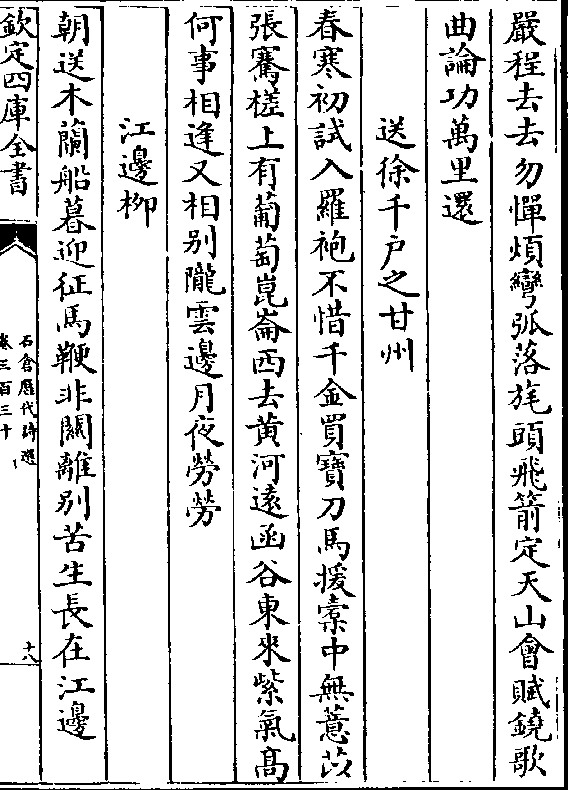 嚴程去去勿憚煩彎弧落旄頭飛箭定天山會賦鐃歌
曲論功萬里還
送徐千戶之甘州
春寒初試入羅袍不惜千金買寶刀馬援槖中無薏苡
張騫槎上有葡萄崑崙西去黄河遠函谷東來紫氣髙
何事相逢又相别隴雲邊月夜勞勞
江邊柳
朝送木蘭船暮迎征馬鞭非關離别苦生長在江邊
欽定四庫全書
石倉歴代詩選
卷三百三十
十八